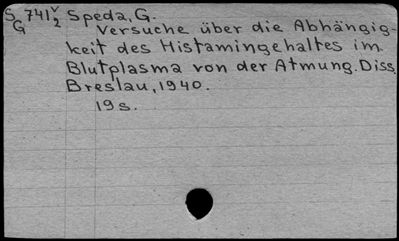 S 741 v Speda, G.
G 2 Versuche über die Abhängig-
keit des Histamingehaltes im
Blutplasma von der Atmung. Diss.
Breslau, 1940.
19 s.